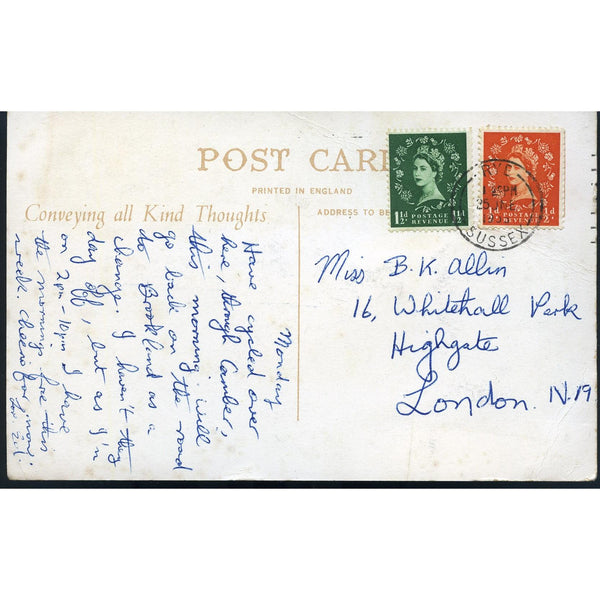 POST CARD
PRINTED IN ENGLAND
Conveying all Kind Thoughts
ADDRESS TO BE
1½d
POSTAGE
REVENUE
½d
POSTAGE
REVENUE
RYE
SUSSEX
Monday
Have cycled over
here, through Camber,
this morning. will
go back on the road
to Brookland as a
change. I haven't the
day off, but as I'm
on 2pm - 10pm I have
the mornings free this
week. Cheers for now.
Miss B. K. Allin
16, Whitehall Park
Highgate
London. N.19